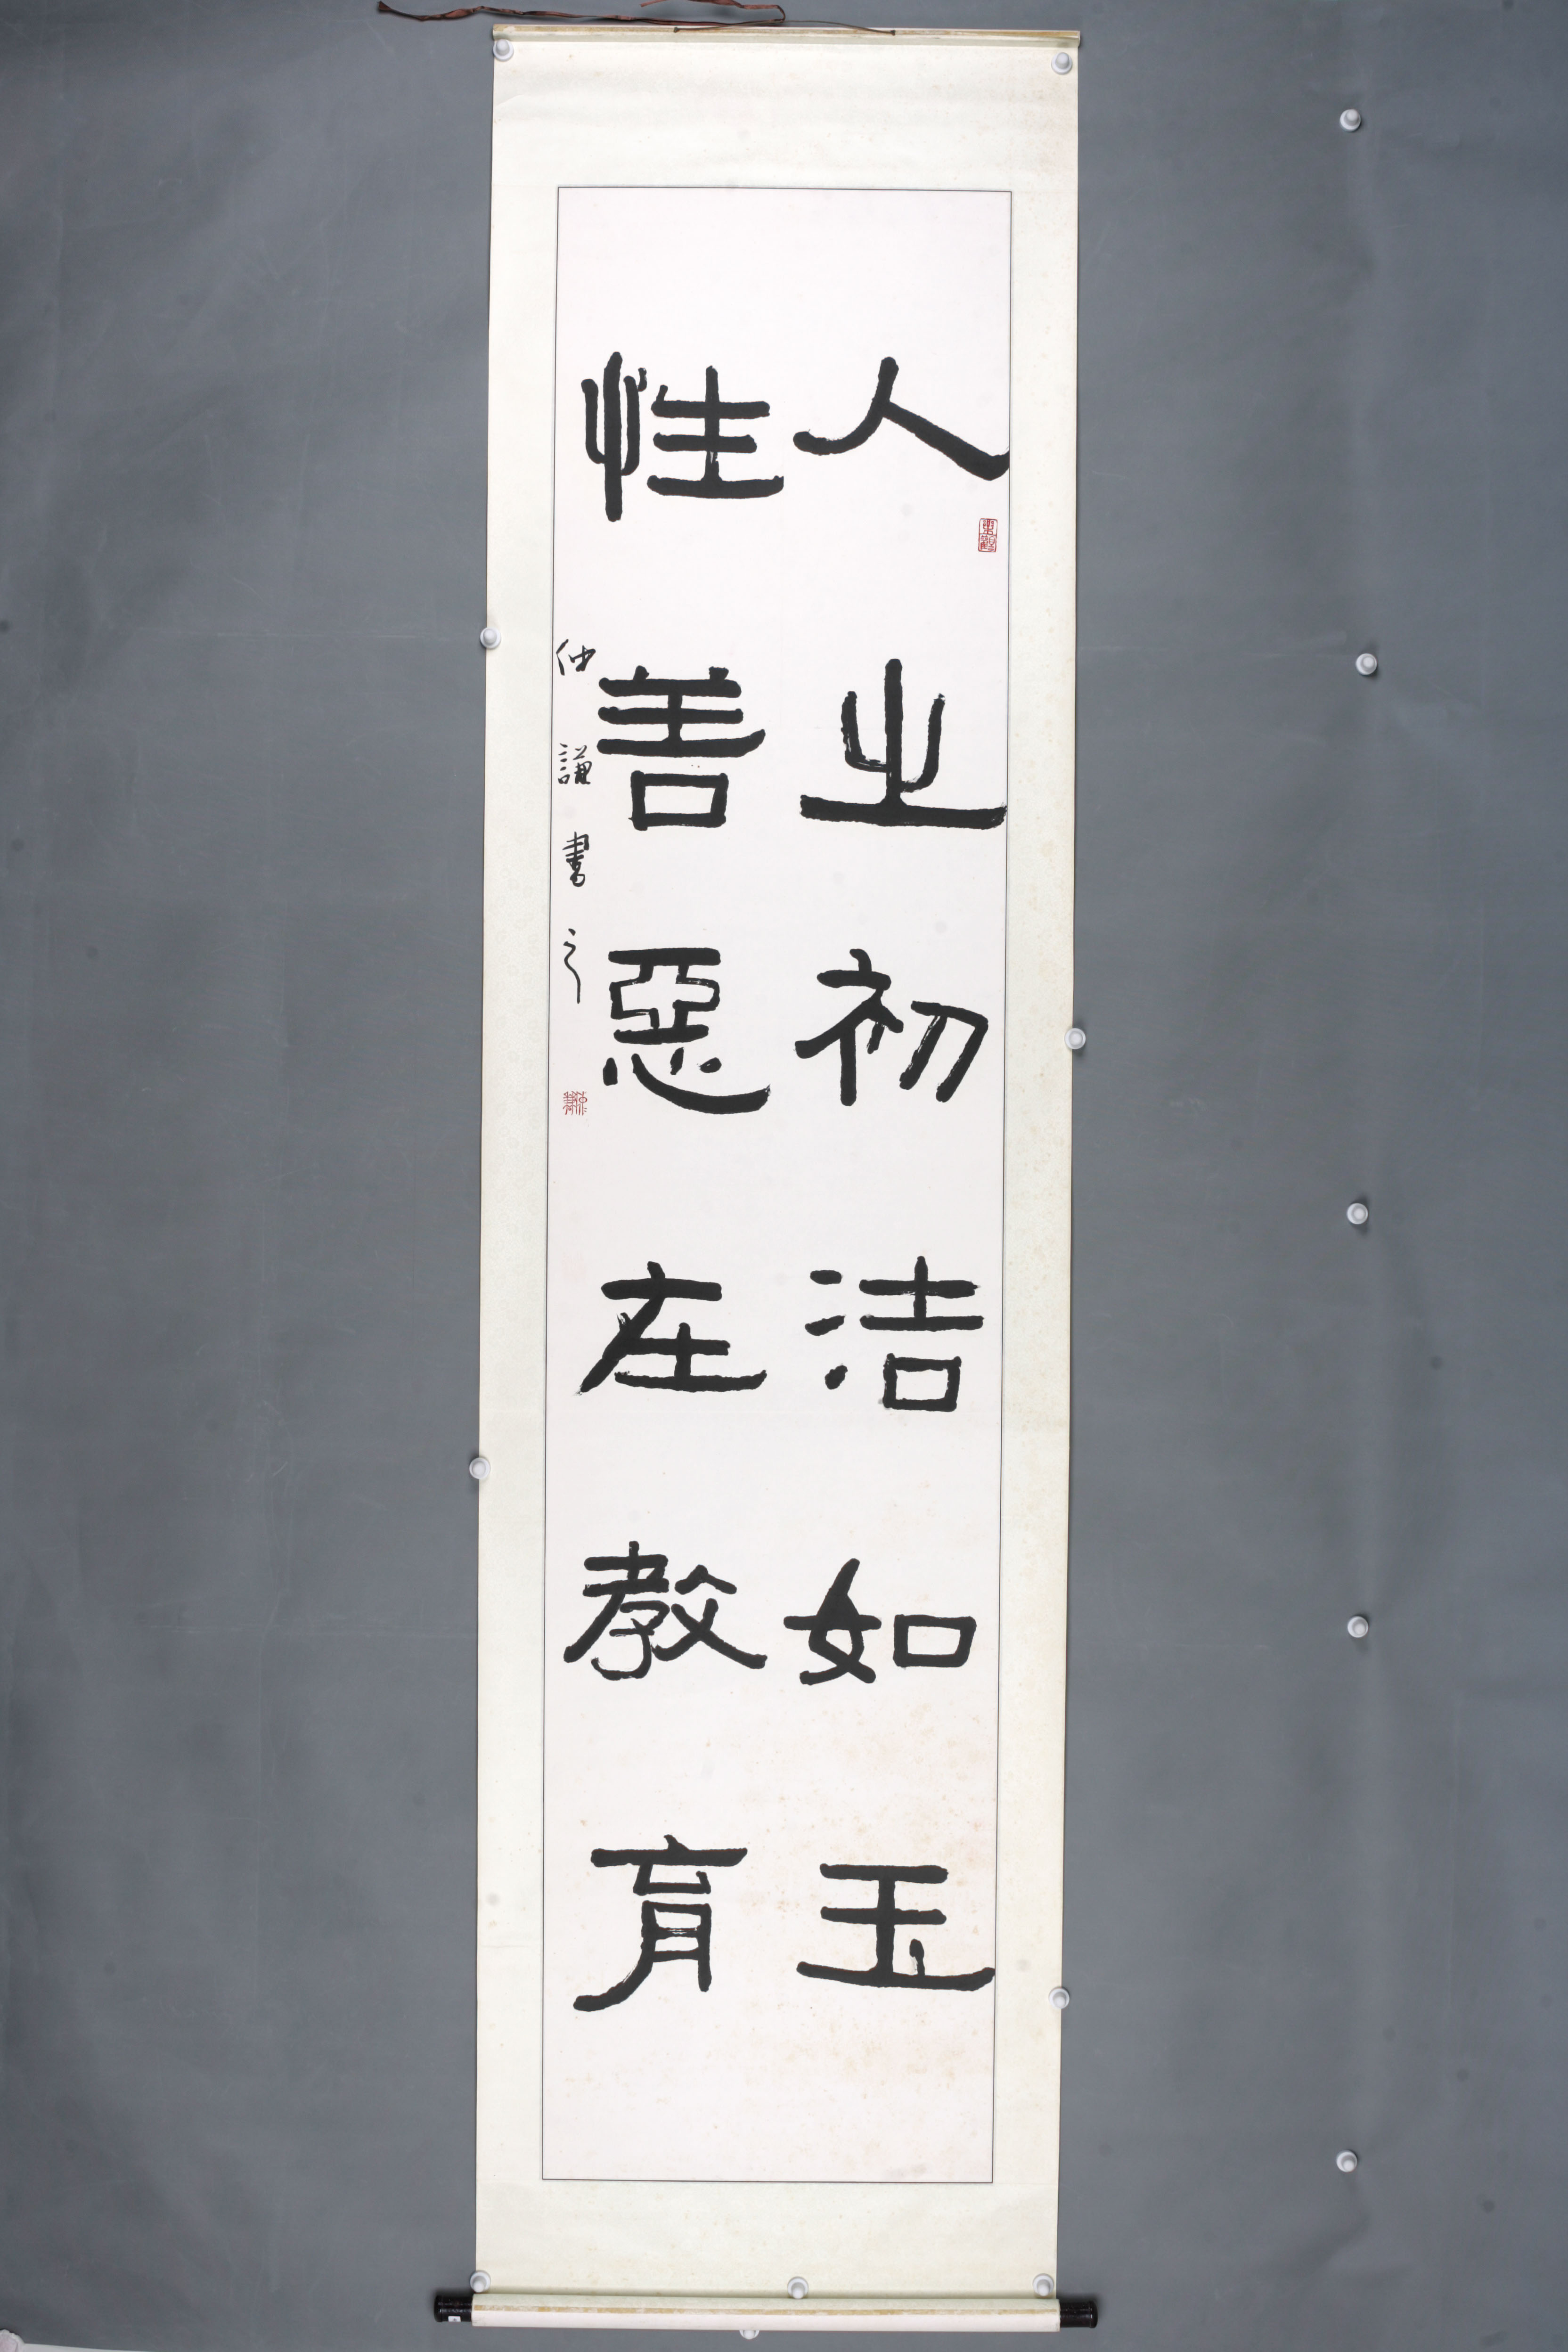 人之初洁如玉
性善惡在教育
仲謙書之